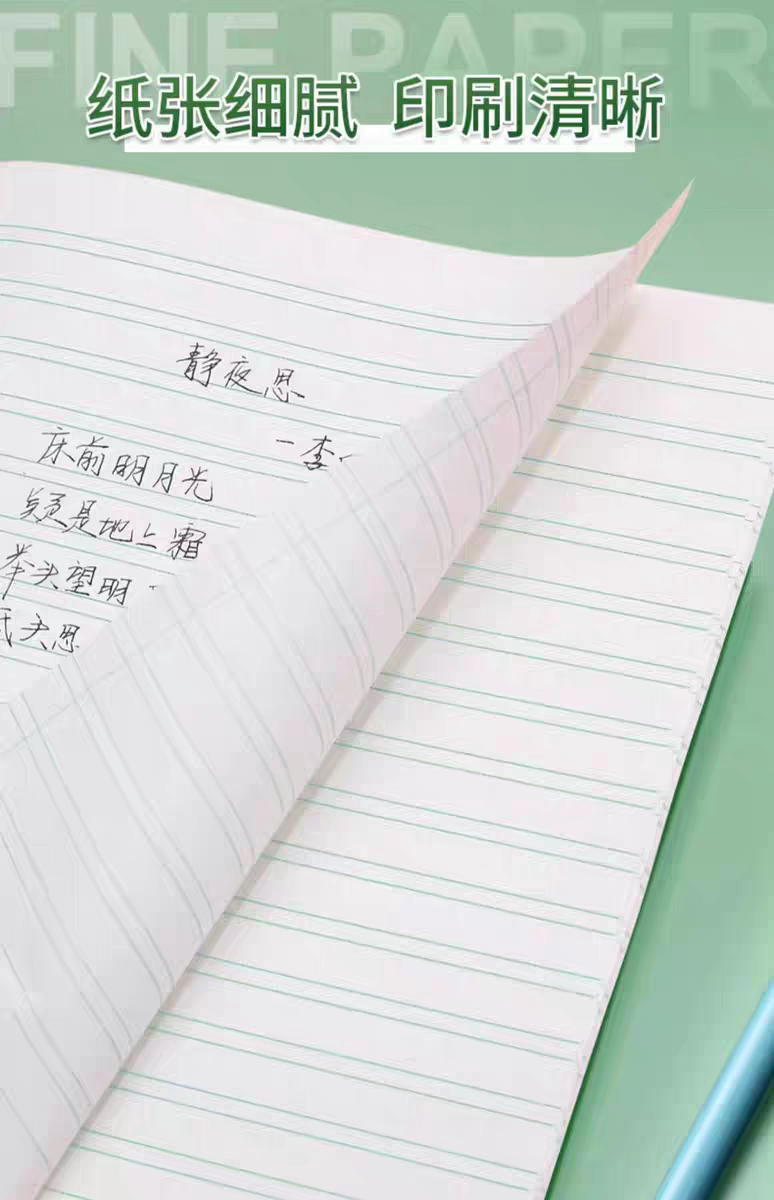 FINE PAPER
纸张细腻 印刷清晰
静夜思
一李
床前明月光
疑是地上霜
举头望明
低头思